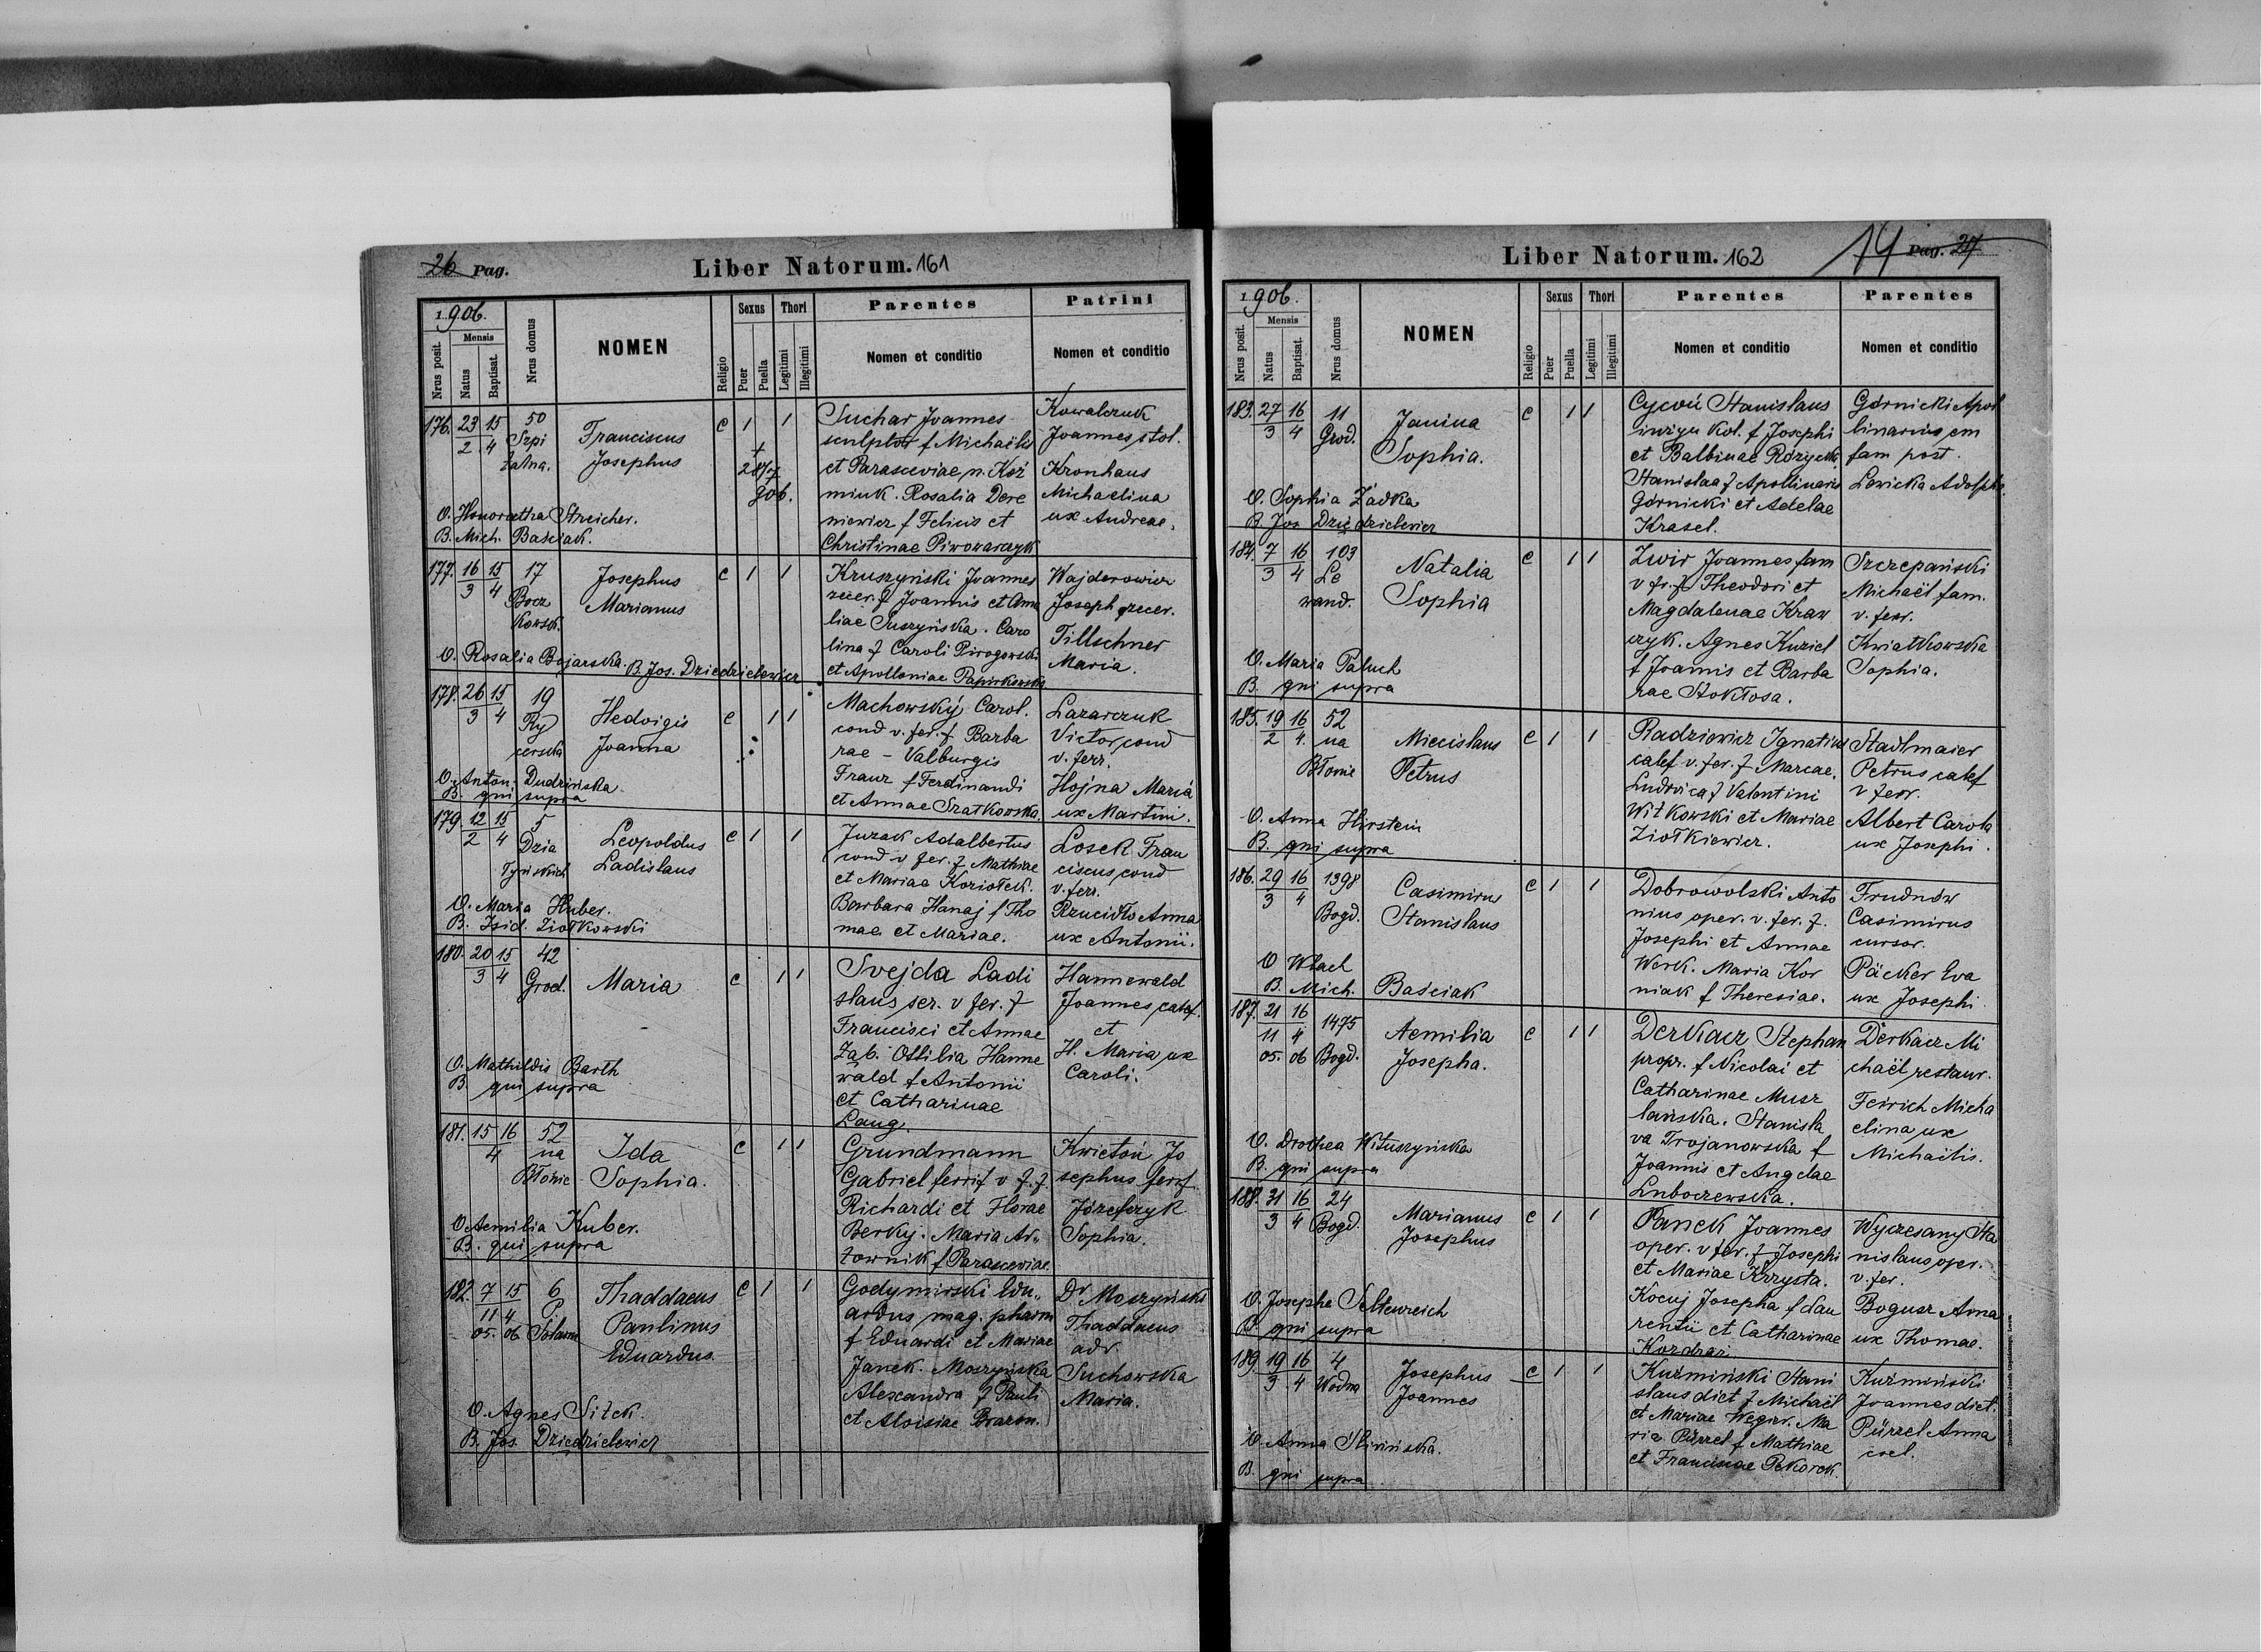 26 Pag.
Liber Natorum. 161
1906.
Nrus posit.
Mensis
Natus
Baptisat.
Nrus domus
NOMEN
Religio
Sexus
Puer
Puella
Thori
Legitimi
Illegitimi
Parentes
Nomen et conditio
Patrini
Nomen et conditio
176. 23 15 50 Franciscus c 1 1 Suchar Joannes Kowalczuk
2 4 Szpi Josephus sculptor f Michaëlis Joannes, stol.
talna. + 28/7 906. et Parasceviae n. Koź Kronhaus
miuk. Rosalia Dere Michaelina
niewicz f Felius et ux Andreae.
Christinae Piwowarczyk
O. Honoratha Streicher.
B. Mich. Basciak.
177. 16 15 17 Josephus c 1 1 Kruszyński Joannes Wajdowicz
3 4 Bocz Marianus zecer. f Joannis et Ama Joseph zecer.
kowsk. liae Suszyńska. Caro Tillschner
lina f Caroli Pirogowski Maria.
et Apolloniae Papirkowska
O. Rosalia Bojarska. B. Jos. Dziedzielewicz
178. 26 15 19 Hedvigis c 1 1 Machowský Carol. Lazarczuk
3 4 Ry Joanna cond v. fer. f Barba Victor, cond
cerska rae – Valburgis v. ferr.
Franz f Ferdinandi Hojna Maria
et Annae Szatkowska. ux Martini.
O. Anton. Dudzińska
B. qui supra
179. 12 15 5 Leopoldus c 1 1 Jurak Adalbertus Losek Fran
2 4 Dzia Ladislaus cond v fer. f Mathiae ciscus, cond
łyńskich et Mariae Koziołek. v. ferr.
Barbara Hanaj f Tho Rzucidło Anna
mae et Mariae. ux Antonii.
O. Maria Huber.
B. Isid. Ziołkowski
180. 20 15 42 Maria c 1 1 Svejda Ladi Hannewald
3 4 Grod. slaus ser. v fer. f Joannes, calef.
Francisci et Annae et
Żąb. Ottilia Hanne H. Maria ux
wald f Antonii Caroli.
et Catharinae
Lang.
O. Mathildis Barth
B. qui supra
181. 15 16 52 Ida c 1 1 Grundmann Kwietoń Jo
4 na Sophia. Gabriel ferrif v f. f. sephus ferrf.
Błonie Richardi et Florae Józefczyk
Berky. Maria Ar„ Sophia.
townik f Parasceviae.
O Aemilia Kuber.
B. qui supra
182. 7 15 6 Thaddaeus c 1 1 Godymirski Edu„ Dr Moszyński
11 4 P. Paulinus ardus mag. pharm Thaddaeus
05. 06 Eduardus. f Eduardi et Mariae adv.
Janek. Moszyńska Suchowska
Alexandra f Pauli Maria.
et Aloisiae Brazon.
O. Agnes Sitek.
B. Jos. Dziedzielewicz
Liber Natorum. 162
14 Pag. 27
1906.
Nrus posit.
Mensis
Natus
Baptisat.
Nrus domus
NOMEN
Religio
Sexus
Puer
Puella
Thori
Legitimi
Illegitimi
Parentes
Nomen et conditio
Parentes
Nomen et conditio
183. 27 16 11 Janina c 1 1 Cycoń Stanislaus Górnicki Apol
3 4 Grod. Sophia. inżyn kol. f Josephi linarius em
et Balbinae Różycka fam post.
Stanislaa f Apollinaris Lewicka Adolpha.
Górnicki et Adelae
Krasel.
O. Sophia Żádka
B. Jos Dziedzielewicz
184. 7 16 103 Natalia c 1 1 Zwir Joannes, fam Szczepański
3 4 Le Sophia v fr. f Theodori et Michaël fam.
wand. Magdalenae Kraw v. ferr.
czyk. Agnes Kuziel Kwiatkowska
f Joannis et Barba Sophia.
rae Stokłosa.
O. Maria Paluch
B. qui supra
185. 19 16 52 Miecislaus c 1 1 Radziewicz Ignatius Stadlmaier
2 4. na Petrus calef v. fer. f Marcae. Petrus calef
Błonie Ludovica f Valentini v ferr.
Witkowski et Mariae Albert Carola
Ziołkiewicz. ux Josephi.
O. Anna Hirstein
B. qui supra
186. 29 16 1398 Casimirus c 1 1 Dobrowolski Anto Trudnów
3 4 Bogd. Stanislaus nius oper. v. fer. f. Casimirus
Josephi et Annae cursor.
Werk. Maria Kor Päcker Eva
niak f Theresiae. ux Josephi.
O Wlach
B. Mich. Basciak
187. 21 16 1475 Aemilia c 1 1 Derkacz Stephan Derkacz Mi
11 4 Bogd. Josepha. propr. f Nicolai et chaël restaur.
05. 06 Catharinae Musz Feirich Micha
lańska. Stanisla elina ux
va Trojanowska f Michaëlis.
Joannis et Angelae
Luboczewska.
O. Drothea Wituszyńska
B. qui supra
188. 31 16 24 Marianus c 1 1 Panek Joannes Wyczesany Sta
3 4 Bogd. Josephus oper. v fer. f Josephi nislaus oper.
et Mariae Krzysta. v. fer.
Kocuj Josepha f Lau Bogusz Anna
rentii et Catharinae ux Thomae.
Kozdraj
O. Josepha Seltenreich
B. qui supra
189 19 16 4 Josephus c 1 1 Kuźmiński Stani Kuźmiński
3 4 Wodna Joannes slaus diet f Michaël Joannes diet.
et Mariae Węgier. Ma Pürzel Anna
ria Pürzel f Mathiae coel.
et Franciscae Pekorek.
O. Anna Śliwińska.
B. qui supra